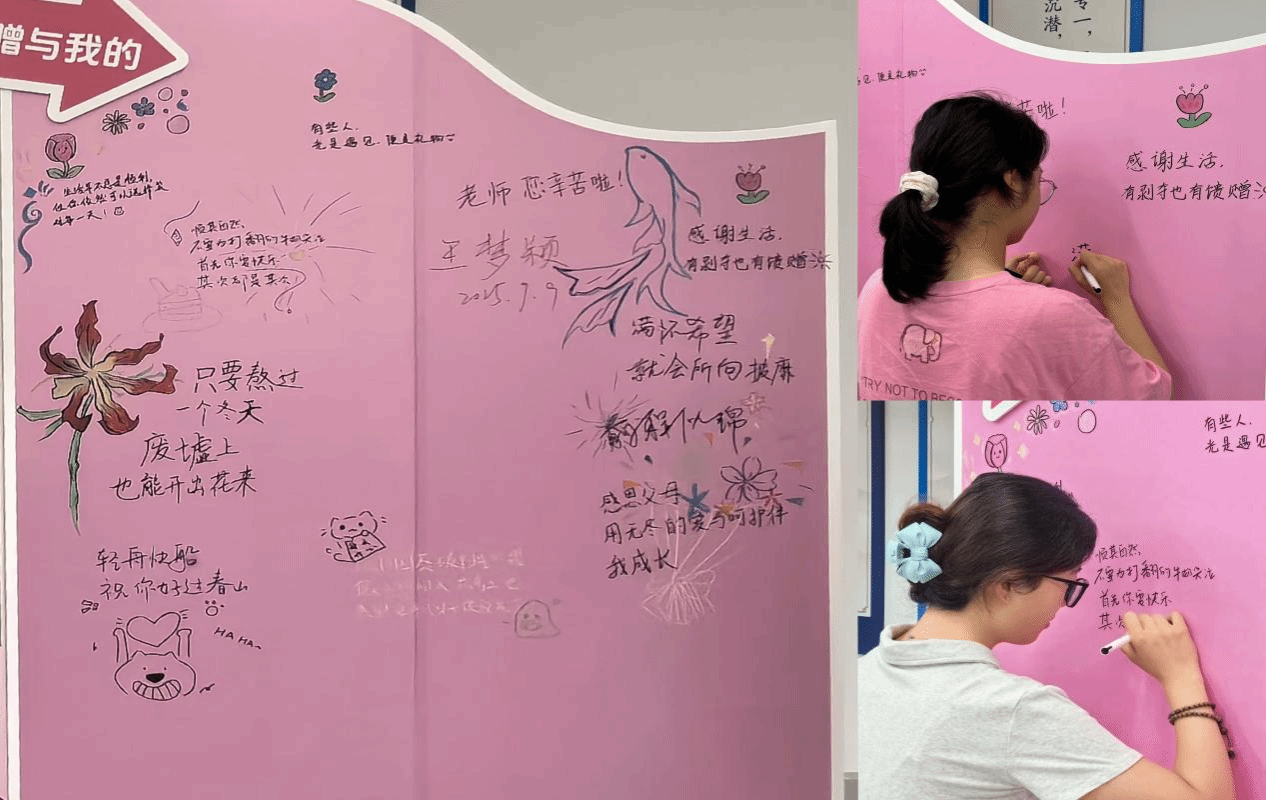 赠与我的
有些人，
光是遇见，便是礼物
生活并不总是顺利，
但你依然可以选择笑
过每一天！
顺其自然，
不要为打翻的牛奶哭泣
首先你要快乐
其次都是其次！
老师 您辛苦啦！
王梦颖
2025.7.9
感谢生活，
有剥夺也有馈赠
满怀希望
就会所向披靡
只要熬过
一个冬天
废墟上
也能开出花来
感恩父母
用无尽的爱与呵护伴
我成长
轻舟快船
祝你好过春山
HA HA
专一，
沉潜，
见，便是礼物
苦啦！
感谢生活，
有剥夺也有馈赠
满
TRY NOT TO BEC
有些人，
光是遇见
顺其自然，
不要为打翻的牛奶哭泣
首先你要快乐
其次